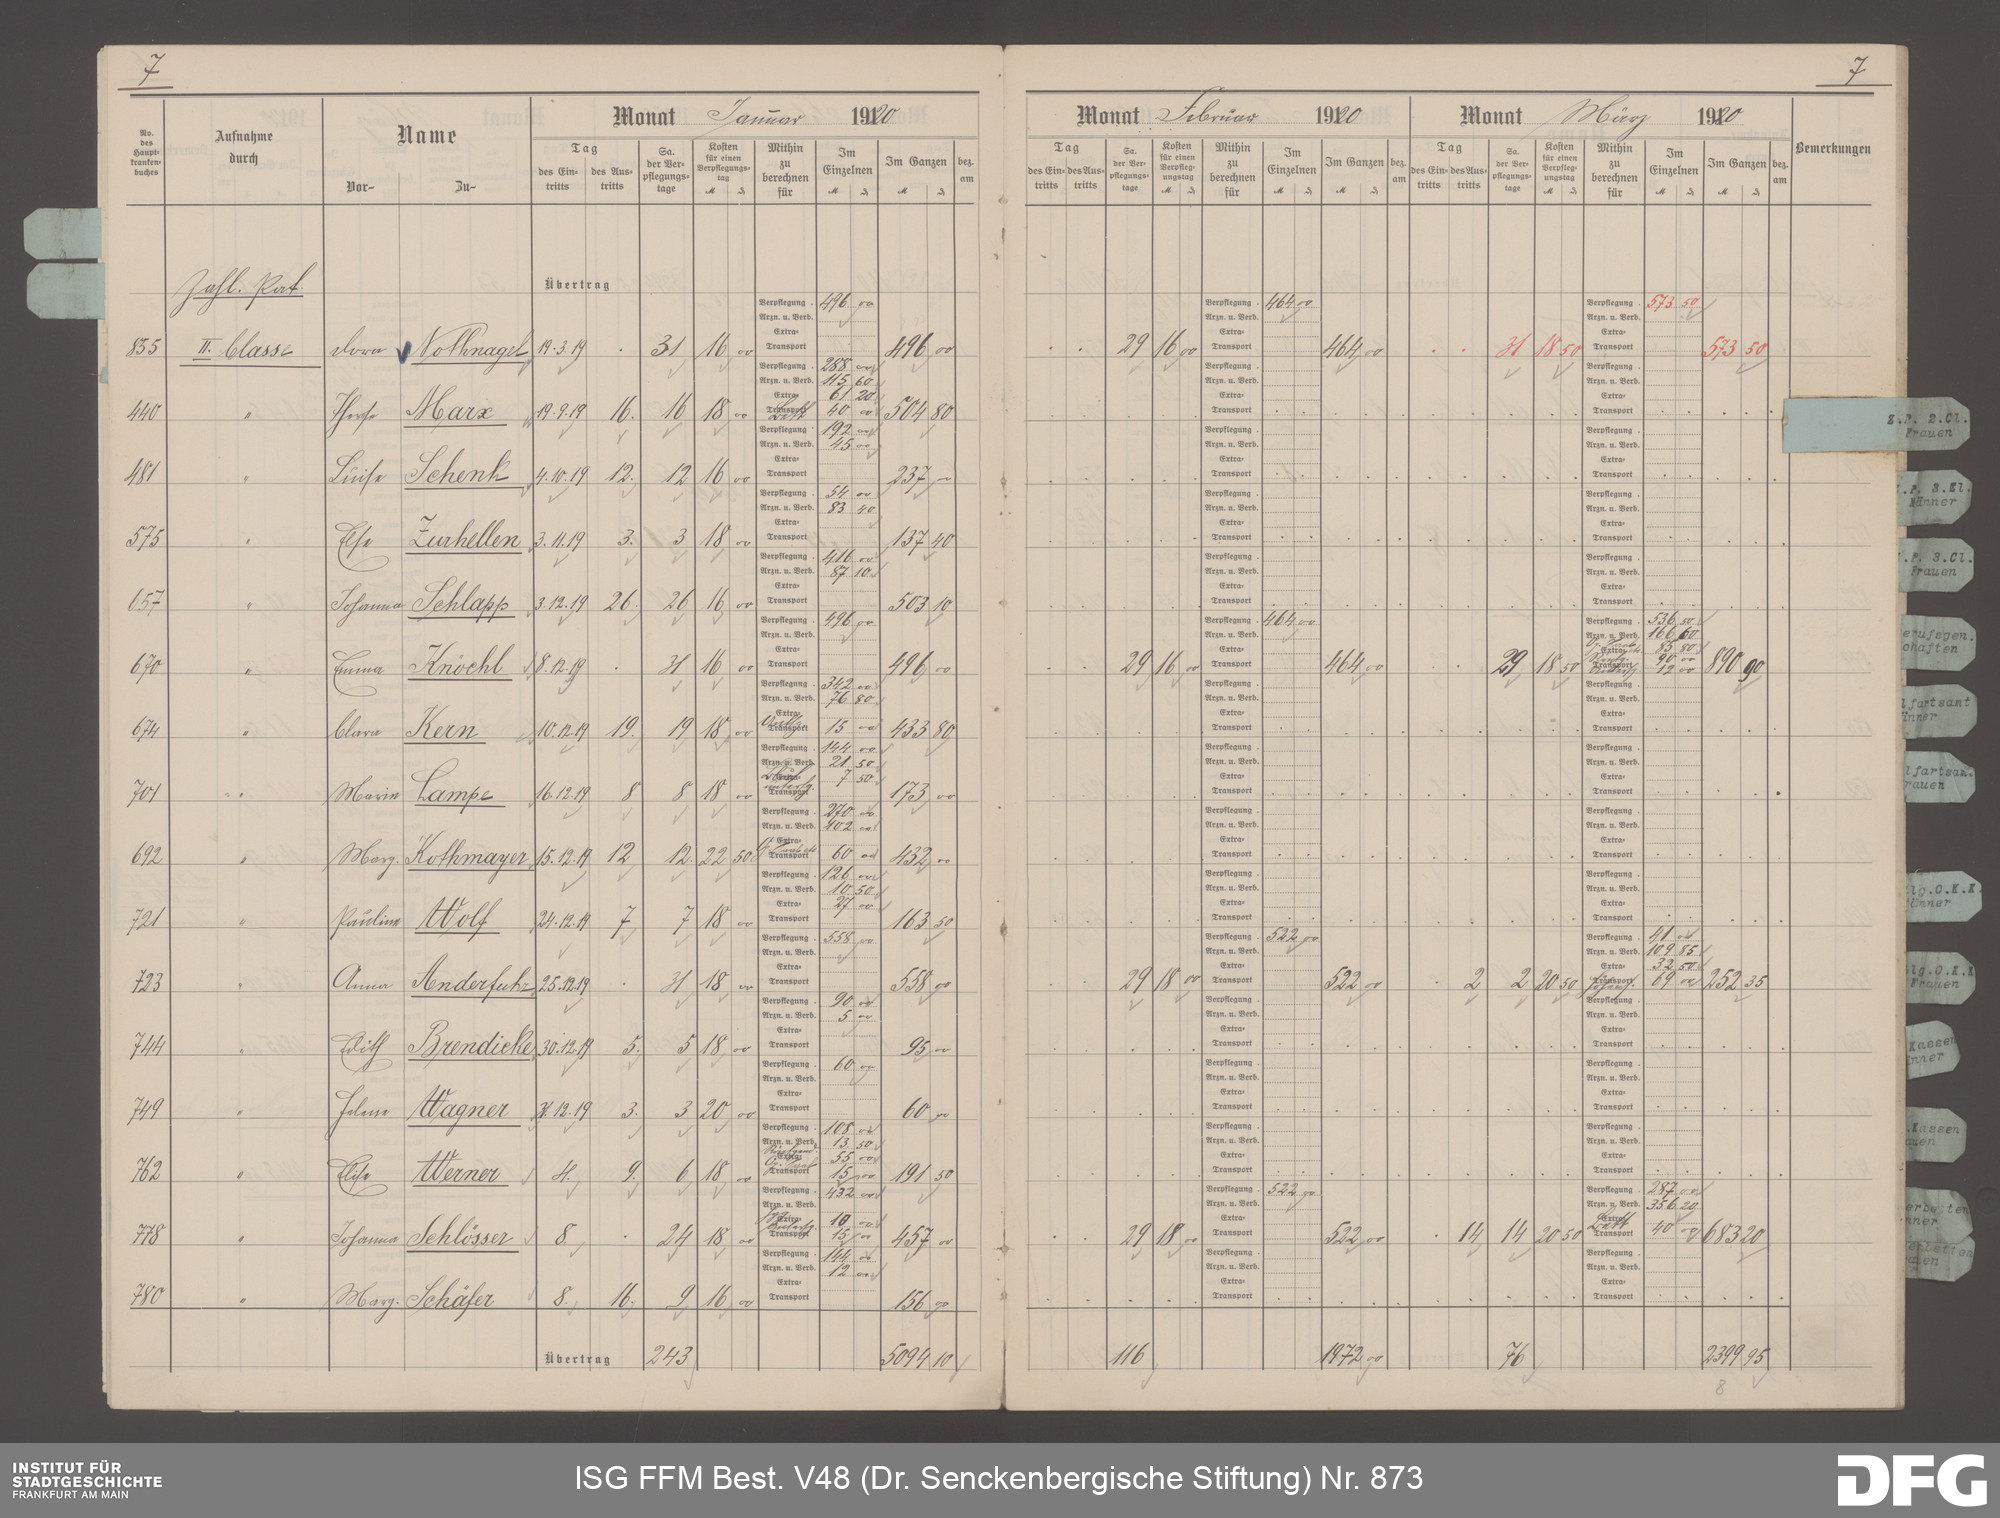 7
7
Monat Januar 1920
Monat Februar 1920
Monat März 1920
No. des Haupt-kranken-buches
Aufnahme durch
Name
Vor-
Zu-
Tag
des Ein-tritts
des Aus-tritts
Sa. der Ver-pflegungs-tage
Kosten für einen Verpflegungs-tag
Mithin zu berechnen für
Im Einzelnen
Im Ganzen
bez. am
Bemerkungen
Zahl. Pat.
Übertrag
Verpflegung . 496 00
Verpflegung . 464 00
Verpflegung . 573 50
Arzn. u. Verb.
Extra-
Transport
855 II. Classe Dora Nothnagel 19.3.19 . 31 16 00 496 00 . . 29 16 00 464 00 . . 31 18 50 573 50
Verpflegung . 288 00
Arzn. u. Verb. 115 60
Extra- 61 20
Transport 40 00
440 " Therese Marx 19.9.19 16. 16 18 00 504 80
Verpflegung . 192 00
Arzn. u. Verb. 45 00
Extra-
Transport
481 " Luise Schenk 4.10.19 12. 12 16 00 237 00
Verpflegung . 54 00
Arzn. u. Verb. 83 40
Extra-
Transport
575 " Else Zurhellen 3.11.19 3. 3 18 00 137 40
Verpflegung . 416 00
Arzn. u. Verb. 87 10
Extra-
Transport
657 " Johanna Schlapp 3.12.19 26. 26 16 00 503 10
Verpflegung . 496 00
Verpflegung . 464 00
Verpflegung . 536 50
Arzn. u. Verb. 166 60
Extra- 85 80
90 00
Transport 12 00
670 " Emma Knöchl 8.12.19 . 31 16 00 496 00 . . 29 16 00 464 00 . . 29 18 50 890 90
Verpflegung . 342 00
Arzn. u. Verb. 76 80
Extra-
Transport 15 00
674 " Clara Kern 10.12.19 19. 19 18 00 433 80
Verpflegung . 144 00
Arzn. u. Verb. 21 50
Extra- 7 50
Transport
701 " Marie Lampe 16.12.19 8 8 18 00 173 00
Verpflegung . 270 00
Arzn. u. Verb. 102 00
Extra-
Transport 60 00
692 " Marg. Kothmayer 15.12.19 12 12. 22 50 432 00
Verpflegung . 126 00
Arzn. u. Verb. 10 50
Extra- 27 00
Transport
721 " Pauline Wolf 24.12.19 7 7 18 00 163 50
Verpflegung . 558 00
Verpflegung . 522 00
Verpflegung . 41 00
Arzn. u. Verb. 109 85
Extra- 32 50
Transport 69 00
723 " Anna Anderfuhr 25.12.19 . 31 18 00 558 00 . . 29 18 00 522 00 . 2 2 20 50 252 35
Verpflegung . 90 00
Arzn. u. Verb. 5 00
Extra-
Transport
744 " Edith Brendicke 30.12.19 5. 5 18 00 95 00
Verpflegung . 60 00
Arzn. u. Verb.
Extra-
Transport
749 " Helene Wagner 31.12.19 3. 3 20 00 60 00
Verpflegung . 108 00
Arzn. u. Verb. 13 50
Extra- 55 00
Transport 15 00
762 " Elise Werner 4. 9. 6 18 00 191 50
Verpflegung . 432 00
Verpflegung . 522 00
Verpflegung . 287 00
Arzn. u. Verb. 356 20
Extra- 10 00
Transport 15 00
40 00
778 " Johanna Schlösser 8. . 24 18 00 457 00 . . 29 18 00 522 00 . 14 14 20 50 683 20
Verpflegung . 144 00
Arzn. u. Verb. 12 00
Extra-
Transport
780 " Marg. Schäfer 8. 16. 9 16 00 156 00
Übertrag 243 5094 10 116 1972 00 76 2399 95
8
Z.P. 2.Cl.
Frauen
.P. 3.Kl.
Männer
.P. 3.Cl.
Frauen
erufsgen.
chaften
lfartsamt
nner
lfartsam.
rauen
lg.O.K.K.
lg.O.K.K
Frauen
Kassen
nner
.Kassen
auen
INSTITUT FÜR
STADTGESCHICHTE
FRANKFURT AM MAIN
ISG FFM Best. V48 (Dr. Senckenbergische Stiftung) Nr. 873
DFG